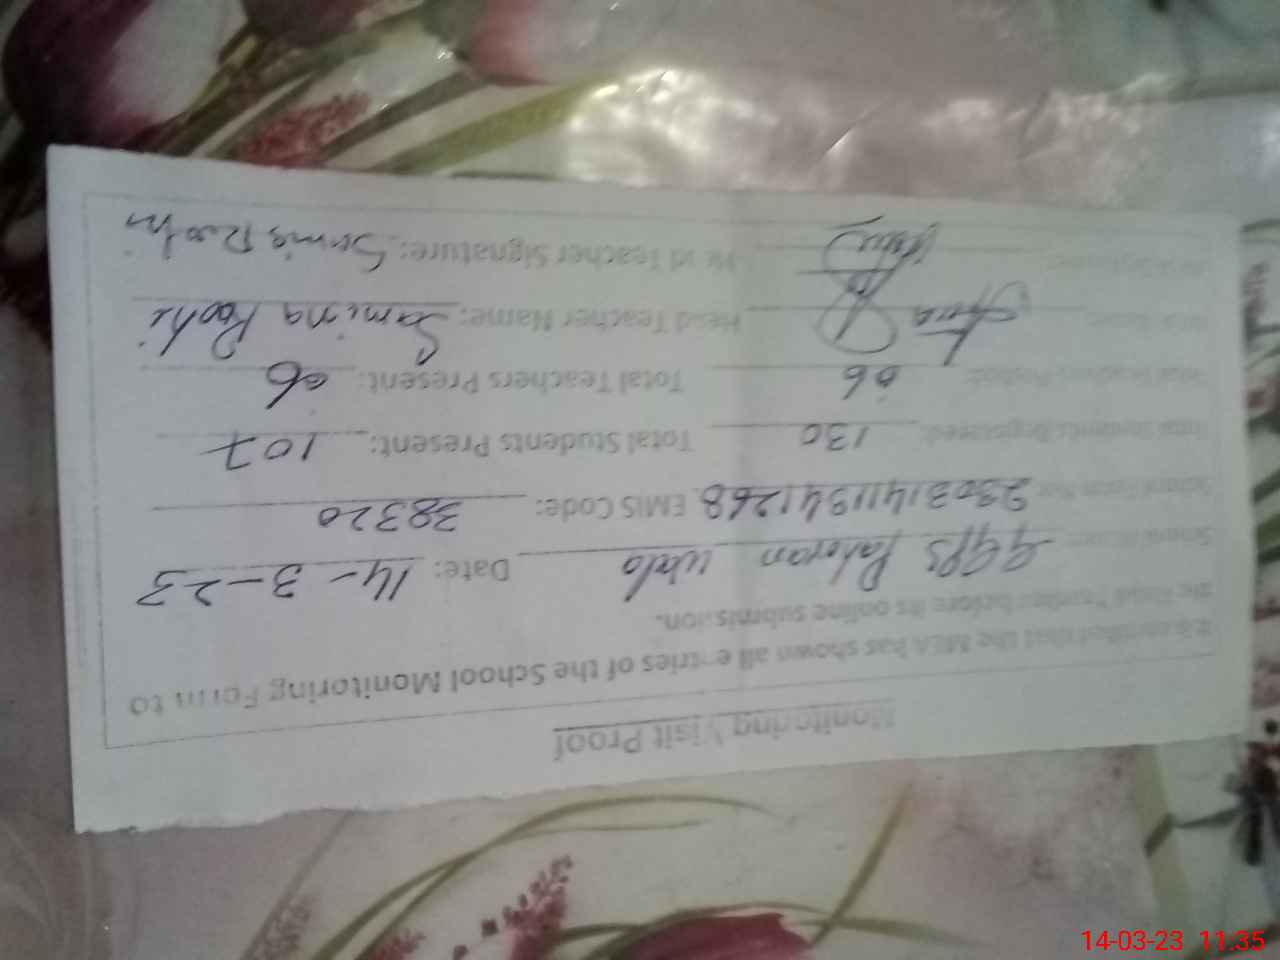 Monitoring Visit Proof
It is certified that the MEA has shown all entries of the School Monitoring Form to
the Head Teacher before its online submission.
School Name: GGPS Pakoran Wala Date: 14-3-23
School EMIS Code: 38320
Total Students Registered: 130 Total Students Present: 107
Total Teachers Posted: 06 Total Teachers Present: 06
Head Teacher Name: Samina Roohi
Head Teacher Signature: Samina Roohi
14-03-23 11:35